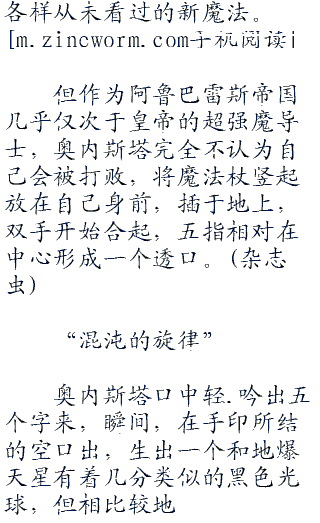 各样从未看过的新魔法。
[m.zincworm.com手机阅读]
但作为阿鲁巴雷斯帝国
几乎仅次于皇帝的超强魔导
士，奥内斯塔完全不认为自
己会被打败，将魔法杖竖起
放在自己身前，插于地上，
双手开始合起，五指相对在
中心形成一个透口。(杂志
虫)
“混沌的旋律”
奥内斯塔口中轻.吟出五
个字来，瞬间，在手印所结
的空口出，生出一个和地爆
天星有着几分类似的黑色光
球，但相比较地